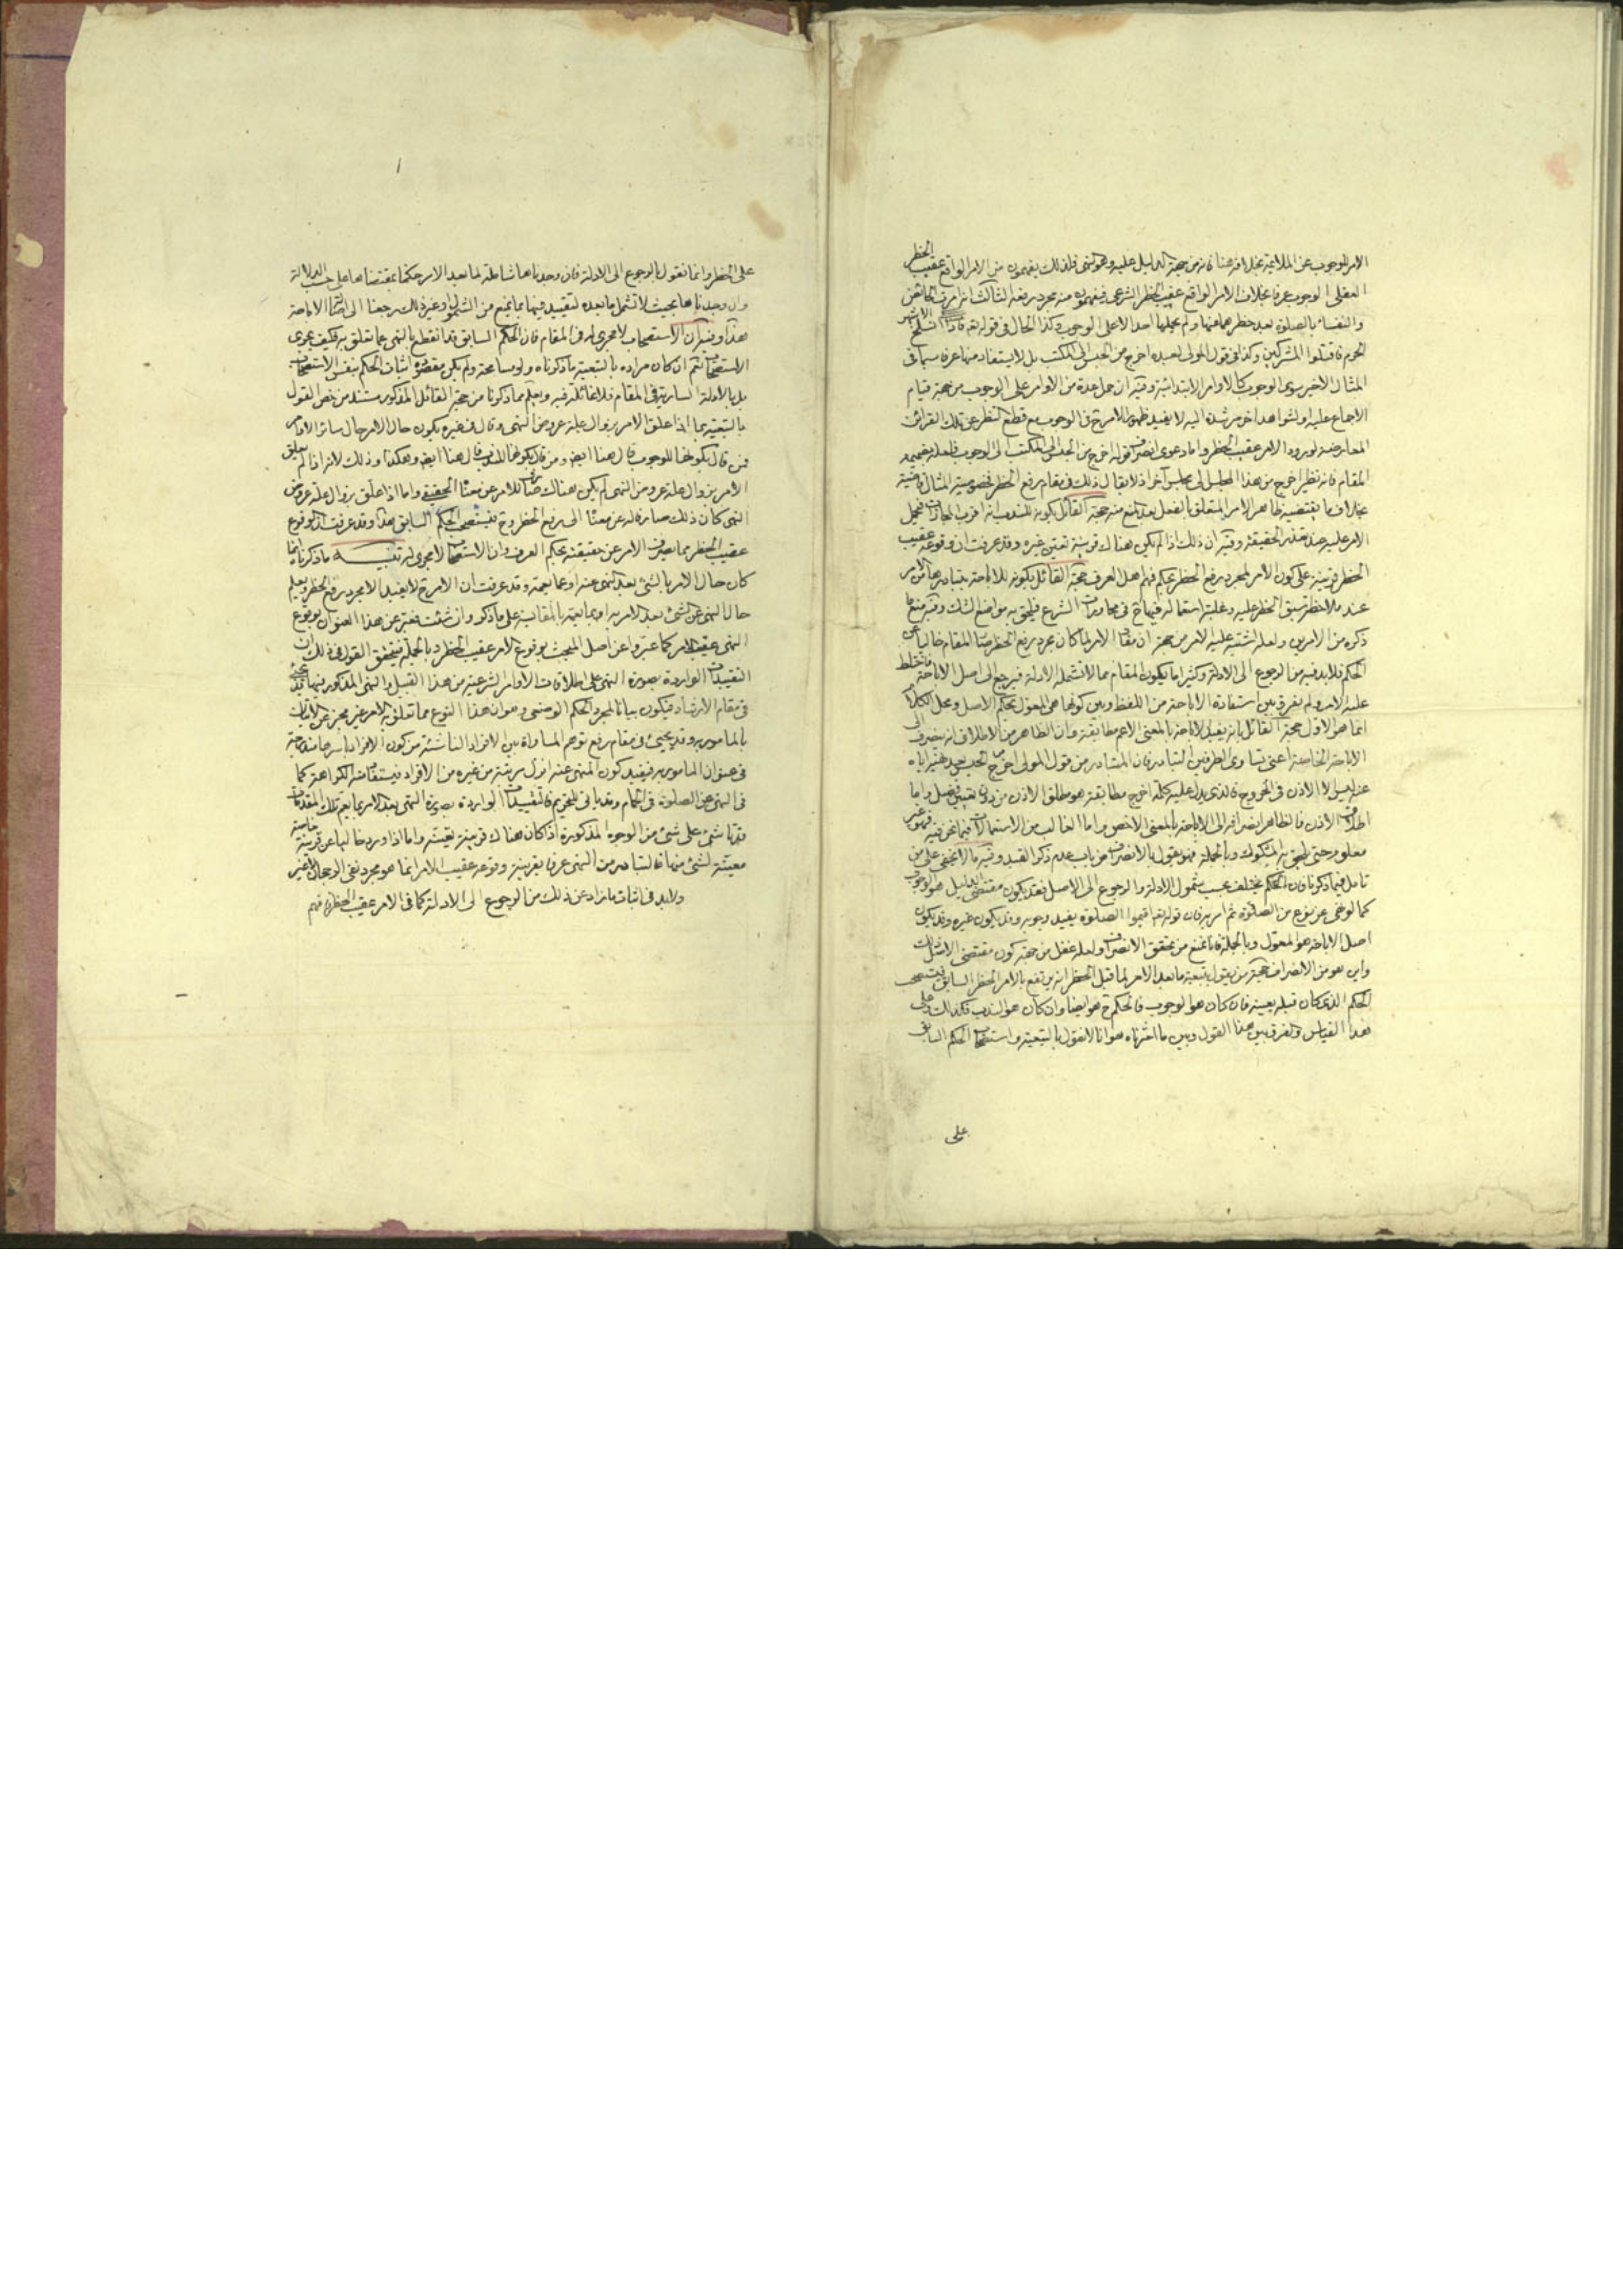 الامر للوجوب عن الملاعبة بخلافه هنا فانه من جهة الدليل عليه وهو النهى فلذلك يفهمون من الامر الواقع عقيب الحظر
العقلى الوجوب عرفا بخلاف الامر الواقع عقيب الحظر الشرعى فيفهمون منه مجرد رفعه الثالث انه امرت الحائض
والنفساء بالصلوة بعد حظرهما عنها ولم يحملها احد الا على الوجوب وكذا الحال فى قوله تعه فاذا انسلخ الاشهر
الحرم فاقتلوا المشركين وكذا فى قول المولى لعبده اخرج من الحبس الى المكتب بل لا يستفاد منها عرفا سيما فى
المثال الاخير سوى الوجوب كالاوامر الابتدائية وفيه ان حمل عدة من الاوامر على الوجوب من جهة قيام
الاجماع عليه او لشواهد اخر مرشدة اليه لا يفيد ظهور الامر ح فى الوجوب مع قطع النظر عن تلك القرائن
المعارضة لورود الامر عقيب الحظر واما دعوى انصراف قوله اخرج من الحبس الى المكتب الى الوجوب فلعله بضميمة
المقام فانه نظير اخرج من هذا المجلس الى مجلس آخر اذ لا يقال ذلك فى مقام رفع الحظر فخصوصية المثال قاضية
بخلاف ما يقتضيه ظاهر الامر المتعلق بالفعل بعد المنع منه حجة القائل بكونه للندب انه اقرب المجازات فيحمل
الامر عليه عند تعذر الحقيقة وفيه ان ذلك اذا لم يكن هناك قرينة تعين غيره وقد عرفت ان وقوعه عقيب
الحظر قرينة على كون الامر لمجرد رفع الحظر بحكم فهم اهل العرف حجة القائل بكونه للاباحة بتبادرها من الامر
عند ملاحظة سبق الحظر عليه وغلبة استعماله فيها ح فى محاورات الشرع فيلحق به مواضع الشك وفيه منع ما
ذكره من الامرين ولعله اشتبه عليه الامر من جهة ان مفاد الامر لما كان مجرد رفع الحظر صار المقام خاليا عن
الحكم فلابد فيه من الرجوع الى الادلة وكثيرا ما يكون المقام مما لا تشمله الادلة فيرجع الى اصل الاباحة فاختلط
عليه الامر ولم يفرق بين استفادة الاباحة من اللفظ وبين كونها هى المعول بحكم الاصل ومحل الكلام
انما هو الاول حجة القائل بانه يفيد الاباحة بالمعنى الاعم مطابقة وان الظاهر من الاطلاق انه ينصرف الى
الاباحة الخاصة اعنى تساوى الطرفين التبادر فان المتبادر من قول المولى اخرج من الحبس بعد منعه اياه
عنه ليس الا الاذن فى الخروج فالذى يدل عليه كلمة اخرج مطابقة هو مطلق الاذن من دون تعيين فصل واما
اطلاق الاذن فالظاهر انصرافه الى الاباحة بالمعنى الاخص واما الغالب من الاستعمالات فيما نحن فيه فهو غير
معلوم حتى يلحق به المشكوك وبالجملة فهو يقول بالانصراف من باب عدم ذكر القيد وفيه ما لا يخفى على من
تامل فيما ذكرنا فان الحكم يختلف بحسب شمول الادلة والرجوع الى الاصل فقد يكون مقتضى الدليل هو الوجوب
كما لو نهى عن نوع من الصلوة ثم امر به فان قوله تعه اقيموا الصلوة يفيد وجوبه وقد يكون غيره وقد يكون
اصل الاباحة هو المعول وبالجملة فانا نمنع من تحقق الانصراف ولعله غفل من جهة كون مقتضى الاصل ذلك
واين هو من الانصراف حجة من يقول بتبعية ما بعد الامر لما قبل الحظر انه يرتفع بالامر الحظر السابق فيستصحب
الحكم الذى كان قبله بعينه فان كان هو الوجوب فالحكم ح هو ايضا وان كان هو الندب فكذلك وعلى
هذا القياس والفرق بين هذا القول وبين ما اخترناه هو انا لا نقول بالتبعية واستصحاب الحكم السابق
على
على الحظر وانما نقول بالرجوع الى الادلة فان وجدناها شاملة لما بعد الامر حكمنا بمقتضاها على حسب الدلالة
وان وجدناها بحيث لا تشمل ما بعده لتقييد فيها بما يمنع من الشمول او غير ذلك رجعنا الى اصالة الاباحة
هذا وفيه ان الاستصحاب لا مجرى له فى المقام فان الحكم السابق قد انقطع بالنهى عما تعلق به فكيف يجرى
الاستصحاب نعم ان كان مراده بالتبعية ما ذكرناه ولو مسامحة ولم يكن مقصوده اثبات الحكم بنفس الاستصحاب
بل بالادلة السارية فى المقام فلا غائلة فيه ويعلم مما ذكرنا من حجة القائل المذكور مستند من خص القول
بالتبعية بما اذا علق الامر بزوال علة عروض النهى وقال فى غيره بكون حال الامر حال سائر الاوامر
فمن قال بكونها للوجوب قال هنا ايضا ومن قال بكونها للندب قال هنا ايضا وهكذا وذلك لانه اذا لم يعلق
الامر بزوال علة عروض النهى لم يكن هناك صارف للامر عن معناه الحقيقى واما اذا علق بزوال علة عروض
النهى كان ذلك صارفا له عن معناه الى رفع الحظر وح فيستصحب الحكم السابق هذا وقد عرفت ان الوقوع
عقيب الحظر مما يصرف الامر عن حقيقته بحكم العرف وان الاستصحاب لا مجرى له تنبيه ما ذكرنا انما
كان حال الامر بالشئ بعد النهى عنه او عما يعمه وقد عرفت ان الامر ح لا يفيد الا مجرد رفع الحظر ويعلم
حال النهى عن الشئ بعد الامر به او بما يعمه بالمقايسة على ما ذكر وان شئت فعبر عن هذا العنوان بوقوع
النهى عقيب الامر كما عبروا عن اصل المبحث بوقوع الامر عقيب الحظر وبالجملة فتحقق القول فى ذلك ان
التقييدات الواردة بصورة النهى على اطلاقات الاوامر الشرعية من هذا القبيل والنهى المذكور فيها قد يجئ
فى مقام الارشاد فيكون بيانا لمجرد الحكم الوضعى وهو ان هذا النوع مما تعلق به الامر غير مجز عن الاتيان
بالمامور به وقد يجئ فى مقام رفع توهم المساواة بين الافراد الناشئة من كون الافراد باسرها مندرجة
فى عنوان المامور به فيفيد كون المنهى عنه انزل مرتبة من غيره من الافراد فيستفاد منه الكراهة كما
فى النهى عن الصلوة فى الحمام وقد ياتى للتحريم فالتقييدات الواردة بصورة النهى بعد الامر بما يعم تلك المقيدات
قد ياتى على شئ من الوجوه المذكورة اذا كان هناك قرينة تعينه واما اذا ورد خاليا عن قرينة خاصة
معينة لشئ منها فالمتبادر من النهى عرفا بقرينة وقوعه عقيب الامر انما هو مجرد نفى الوجوب لا غير
ولابد فى اثبات ما زاد عن ذلك من الرجوع الى الادلة كما فى الامر عقيب الحظر فافهم